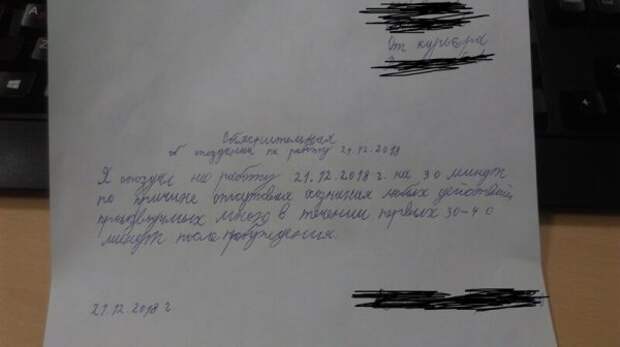 От курьера
Объяснительная
об опоздании на работу 21.12.2018
Я опоздал на работу 21.12.2018 г. на 30 минут
по причине отсутствия осознания любых действий,
производимых мною в течении первых 30-40
минут после пробуждения.
21.12.2018 г.